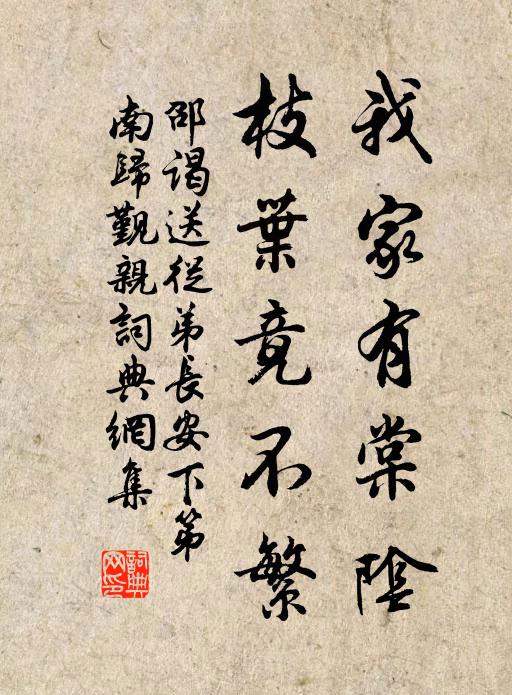 我家有棠陰
枝葉竟不繁
邵謁送從弟長安下第
南歸覲親詞典網集
詞典网印